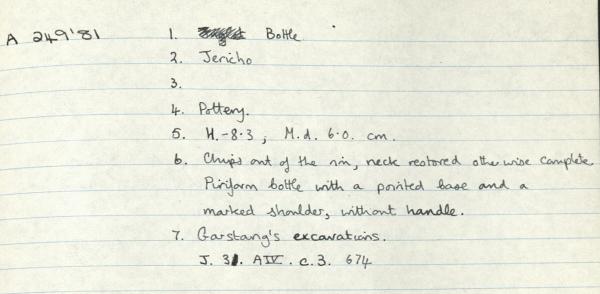 A 249'81 1. Bottle
2. Jericho
3.
4. Pottery.
5. H.-8.3; M.d. 6.0. cm.
6. Chips out of the rim, neck restored otherwise complete.
Piriform bottle with a pointed base and a
marked shoulder, without handle.
7. Garstang's excavations.
J. 31. A IV. c.3. 674